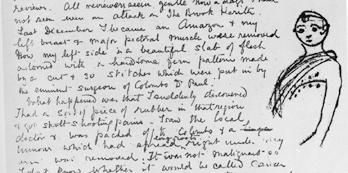 reviews. All reviewers seem gentle now a days. I have
not seen even an attack on The Brook Kerith.
Last December I became an Amazon & my
left breast & major pectoral muscle were removed
Now my left side is a beautiful slab of flesh
adorned with a handsome fern pattern made
by a cut & 30 stitches which were put in by
the eminent surgeon of Colombo Dr Paul.
What happened was that I suddenly discovered
I had a sort of piece of rubber in that region
& got shooting pains. I saw the local
doctor & was packed off to Colombo & a
tumour which had spread right under
was removed. It was not malignant so
I don't know whether it would be called Cancer